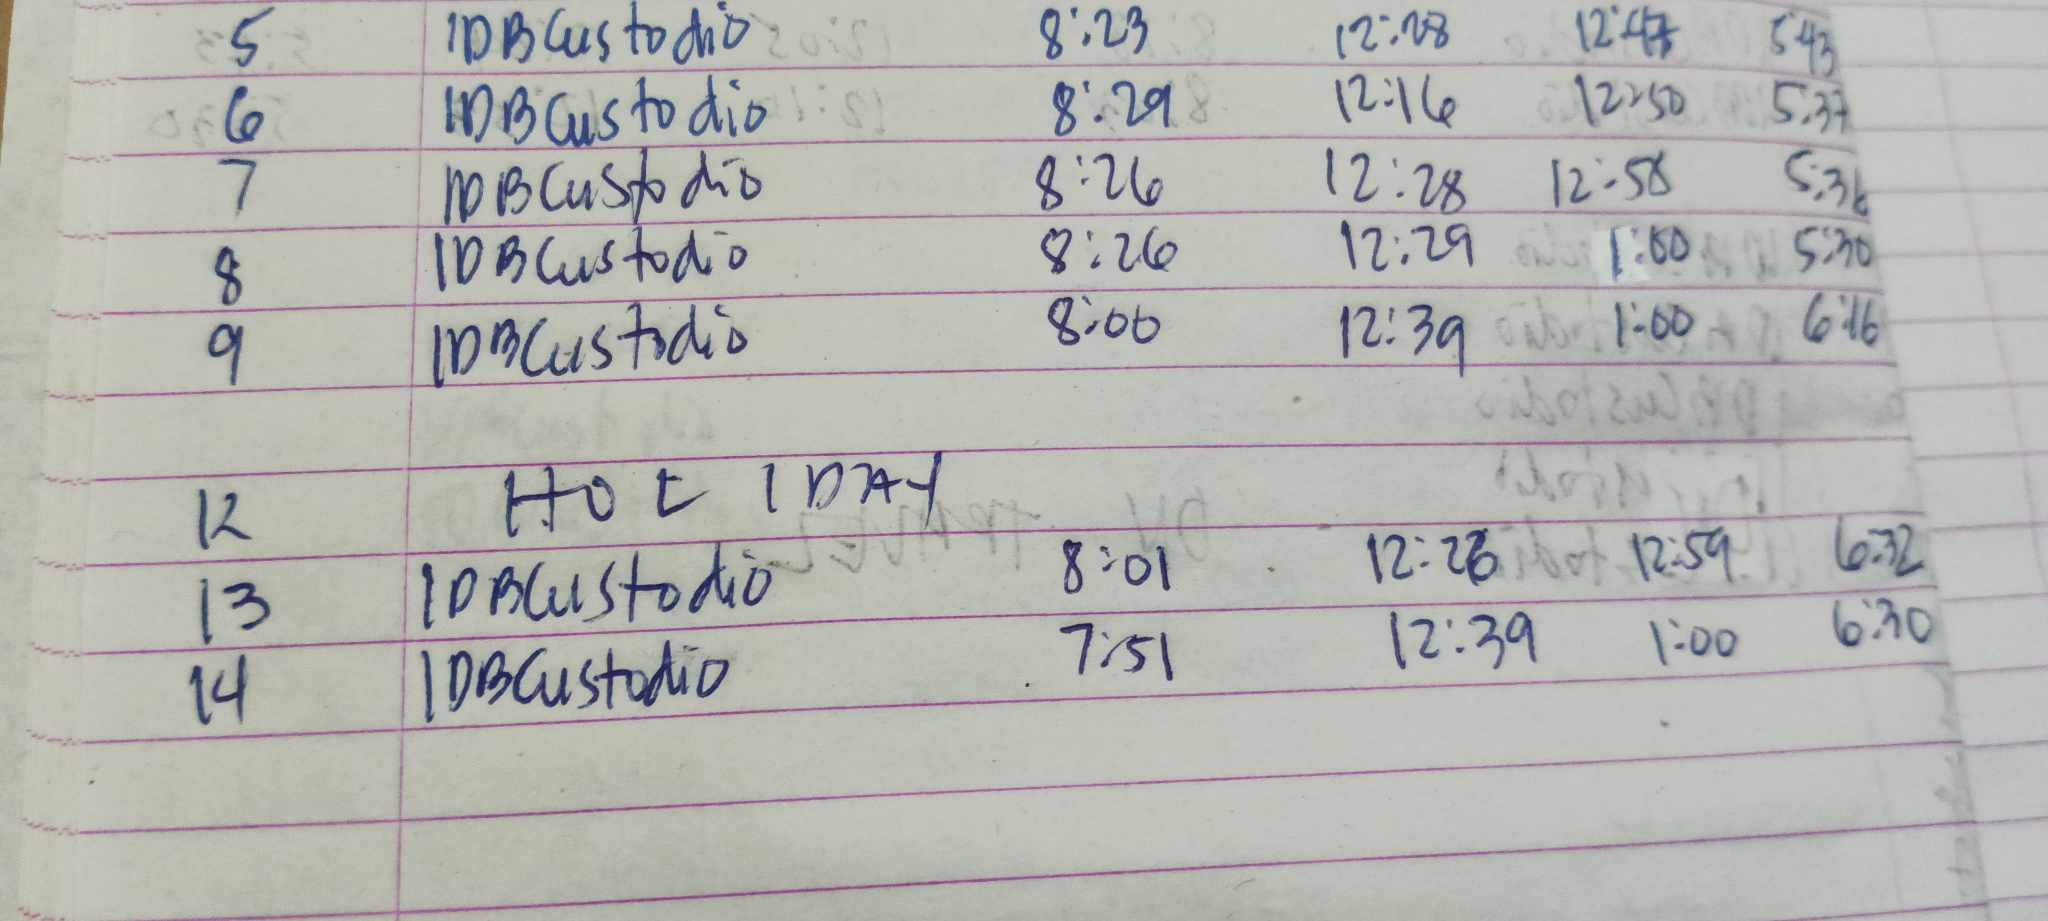 5 IDBCustodio 8:23 12:28 12:47 5:43
6 IDBCustodio 8:29 12:16 12:50 5:37
7 IDBCustodio 8:26 12:28 12:58 5:36
8 IDBCustodio 8:26 12:29 1:00 5:30
9 IDBCustodio 8:00 12:39 1:00 6:16
12 HOLIDAY
13 IDBCustodio 8:01 12:28 12:59 6:32
14 IDBCustodio 7:51 12:39 1:00 6:30